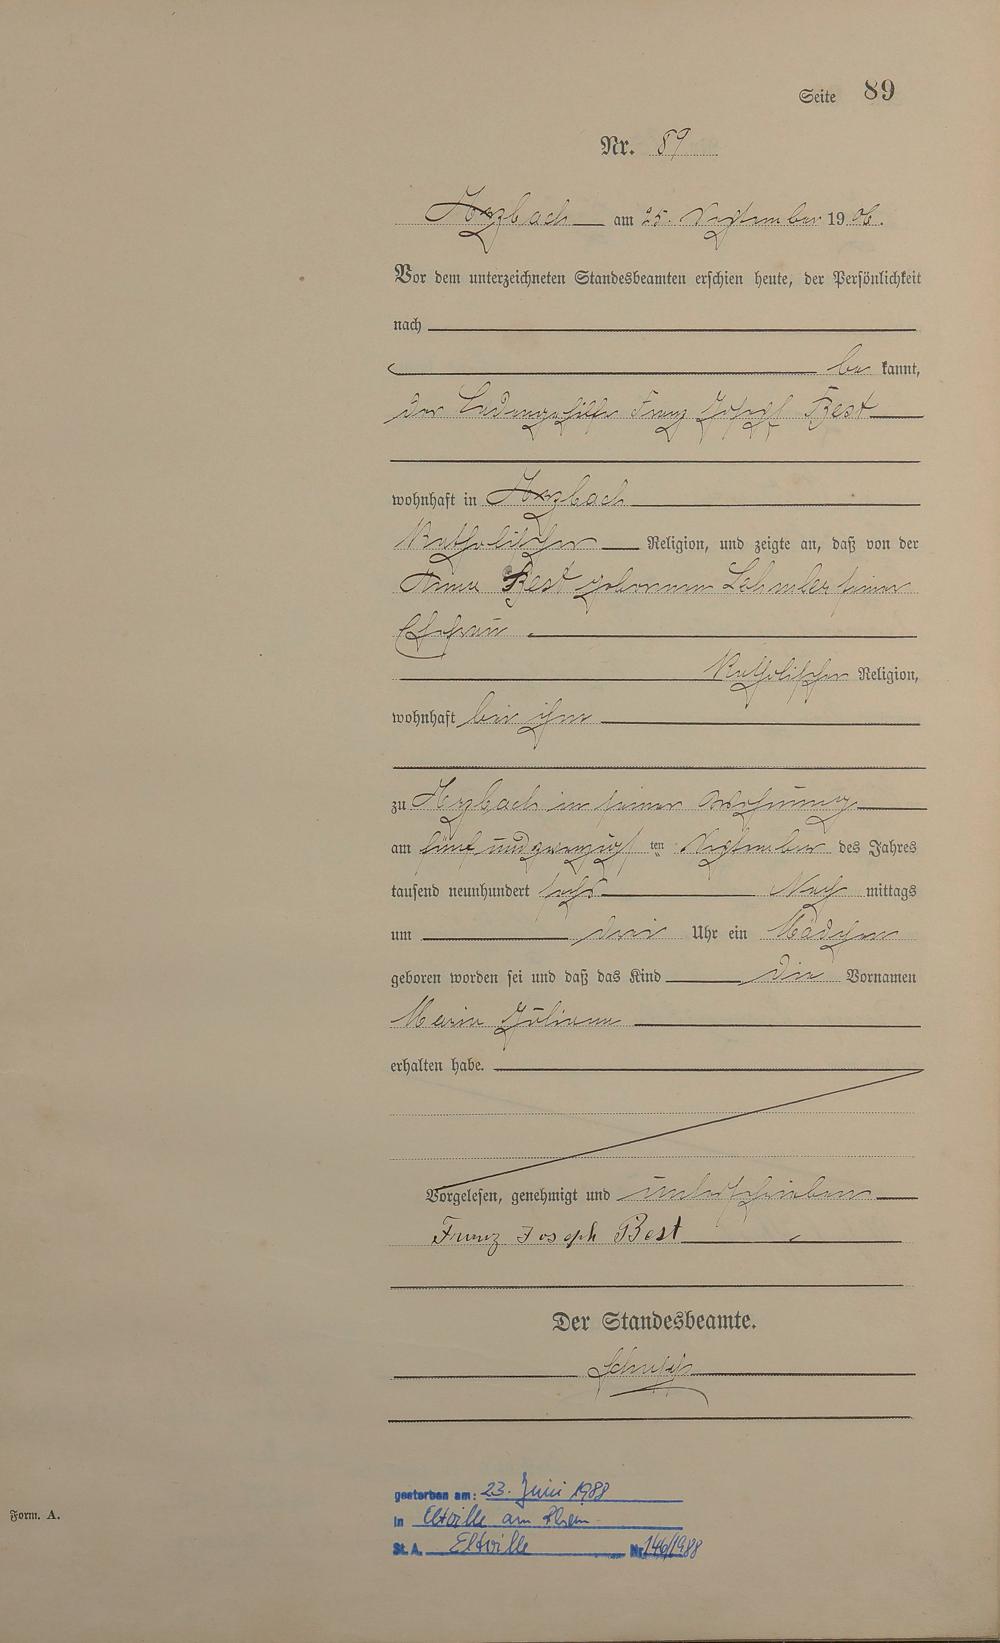 Seite 89
Nr. 89
am 25. September 1906.
Vor dem unterzeichneten Standesbeamten erschien heute, der Persönlichkeit
nach
be kannt,
der Franz Josef Best
wohnhaft in
Katholischer Religion, und zeigte an, daß von der
Anna Best geborenen seiner
Ehefrau
Katholischer Religion,
wohnhaft bei ihm
zu in seiner Wohnung
am fünf und zwanzigsten ten September des Jahres
tausend neunhundert sechs Nach mittags
um drei Uhr ein Mädchen
geboren worden sei und daß das Kind die Vornamen
Maria Juliana
erhalten habe.
Vorgelesen, genehmigt und unterschrieben
Franz Joseph Best
Der Standesbeamte.
gestorben am: 23. Juni 1988
in Eltville am Rhein
St. A. Eltville Nr. 146/1988
Form. A.